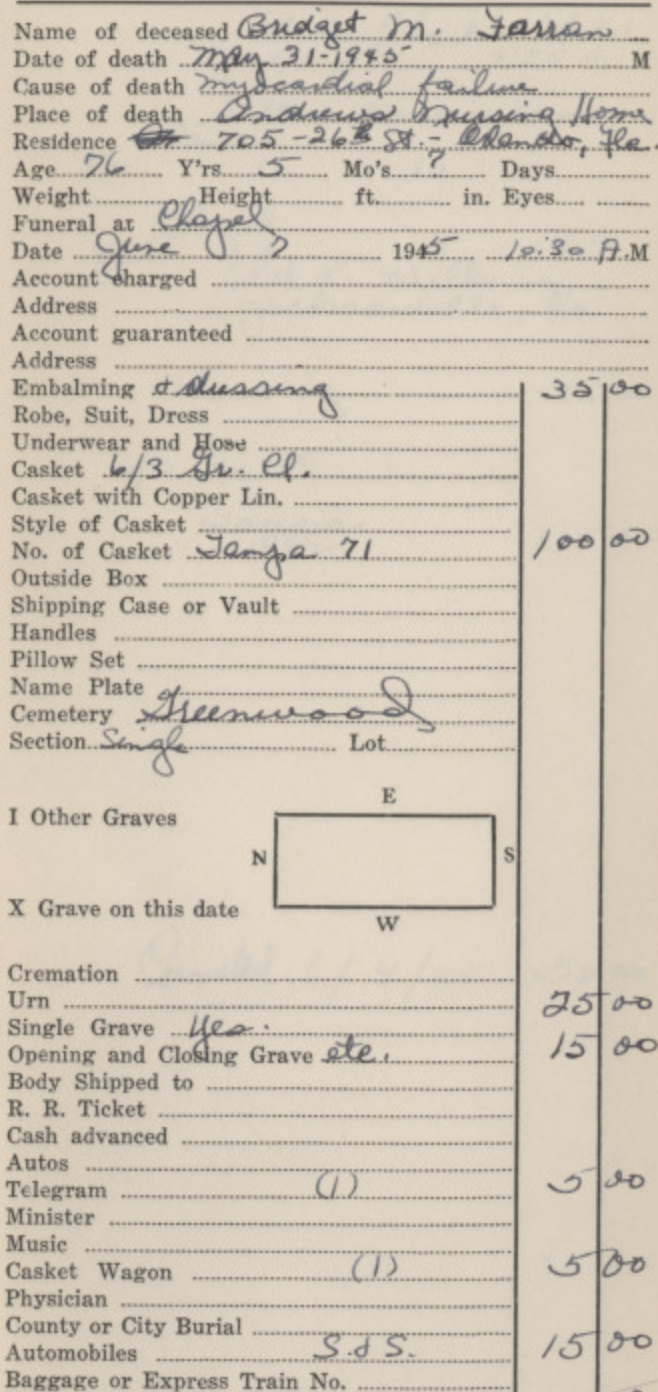 Name of deceased Bridget M. Farran
Date of death May 31-1945 M
Cause of death myocardial failure
Place of death Andrews Nursing Home
Residence 705-26th St. - Orlando, Fla.
Age 76 Y'rs. 5 Mo's ? Days
Weight Height ft. in. Eyes
Funeral at Chapel
Date June 7 1945 10:30 A.M
Account charged
Address
Account guaranteed
Address
Embalming & dressing 35 00
Robe, Suit, Dress
Underwear and Hose
Casket 6/3 Gr. Cl.
Casket with Copper Lin.
Style of Casket
No. of Casket Tampa 71 100 00
Outside Box
Shipping Case or Vault
Handles
Pillow Set
Name Plate
Cemetery Greenwood
Section Single Lot
E
I Other Graves
N S
X Grave on this date
W
Cremation
Urn
Single Grave Yes. 25 00
Opening and Closing Grave etc. 15 00
Body Shipped to
R. R. Ticket
Cash advanced
Autos
Telegram (1) 5 00
Minister
Music
Casket Wagon (1) 5 00
Physician
County or City Burial
Automobiles S. & S. 15 00
Baggage or Express Train No.